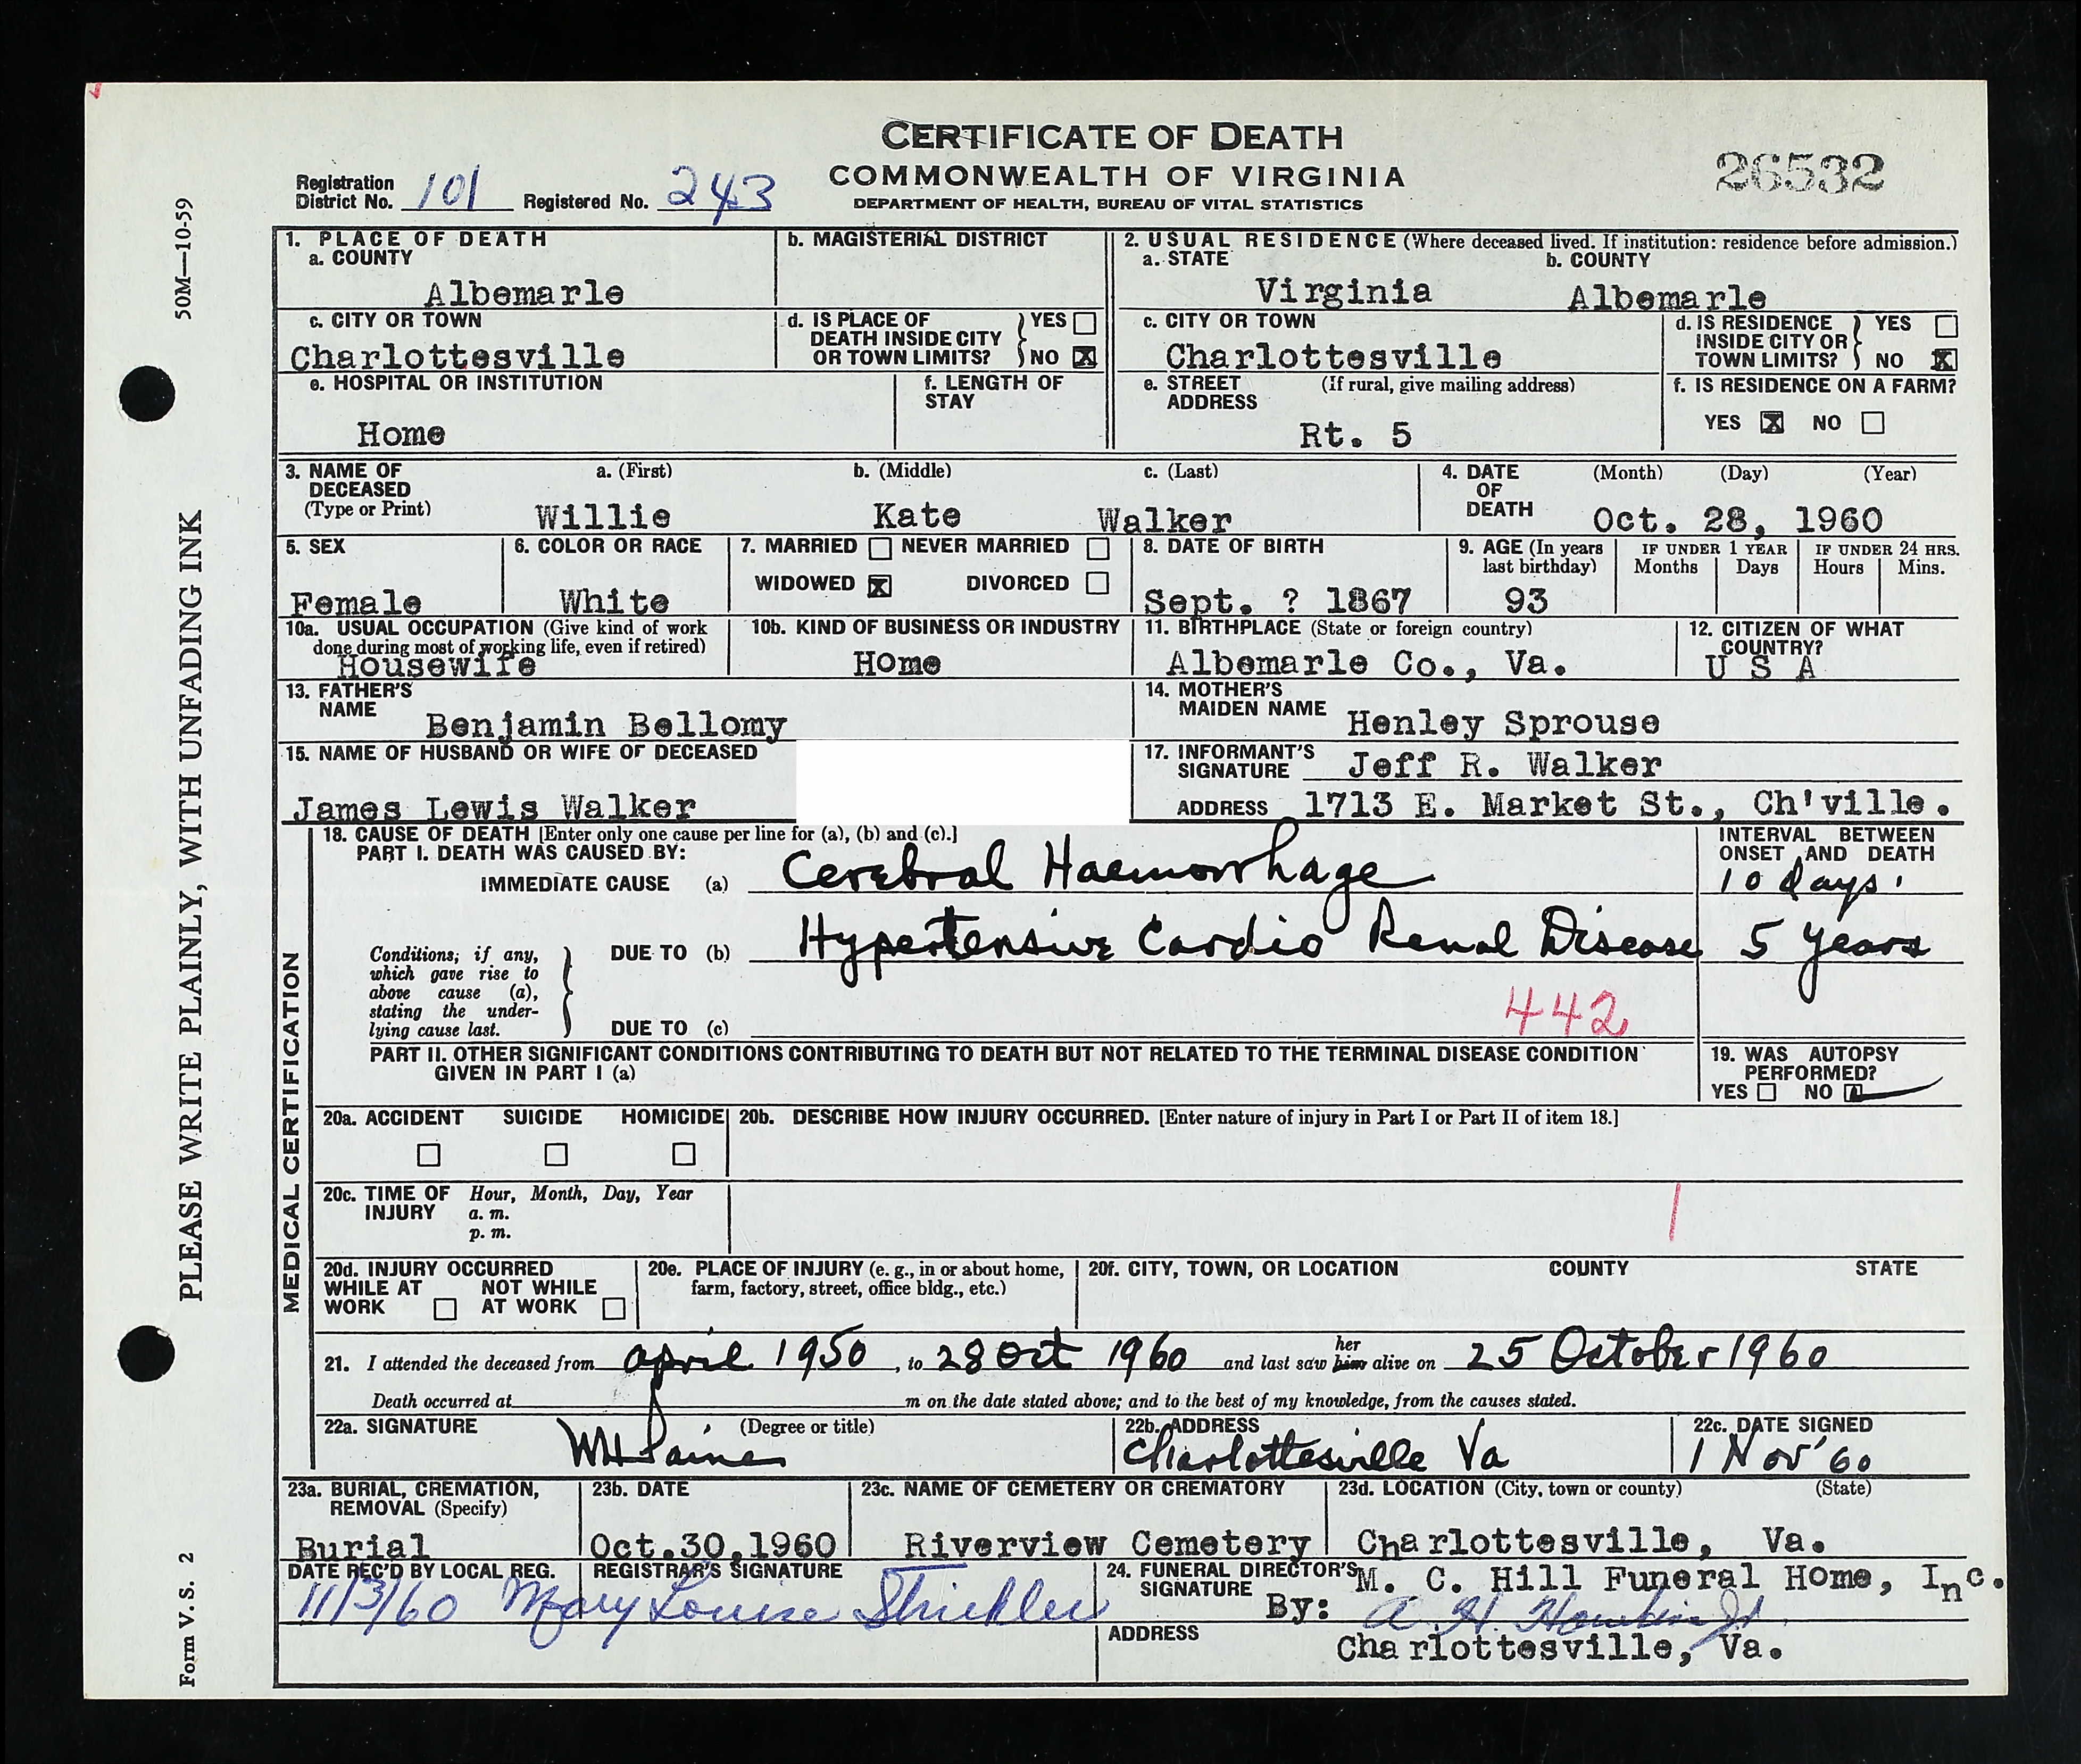 CERTIFICATE OF DEATH
COMMONWEALTH OF VIRGINIA
DEPARTMENT OF HEALTH, BUREAU OF VITAL STATISTICS
26532
Registration District No. 101 Registered No. 243
50M—10-59
PLEASE WRITE PLAINLY, WITH UNFADING INK
Form V. S. 2
1. PLACE OF DEATH
a. COUNTY
Albemarle
b. MAGISTERIAL DISTRICT
2. USUAL RESIDENCE (Where deceased lived. If institution: residence before admission.)
a. STATE
Virginia
b. COUNTY
Albemarle
c. CITY OR TOWN
Charlottesville
d. IS PLACE OF DEATH INSIDE CITY OR TOWN LIMITS? YES NO X
c. CITY OR TOWN
Charlottesville
d. IS RESIDENCE INSIDE CITY OR TOWN LIMITS? YES NO X
e. HOSPITAL OR INSTITUTION
Home
f. LENGTH OF STAY
e. STREET ADDRESS (If rural, give mailing address)
Rt. 5
f. IS RESIDENCE ON A FARM?
YES X NO
3. NAME OF DECEASED (Type or Print)
a. (First) b. (Middle) c. (Last)
Willie Kate Walker
4. DATE OF DEATH (Month) (Day) (Year)
Oct. 28, 1960
5. SEX
Female
6. COLOR OR RACE
White
7. MARRIED NEVER MARRIED
WIDOWED X DIVORCED
8. DATE OF BIRTH
Sept. ? 1867
9. AGE (In years last birthday)
93
IF UNDER 1 YEAR
Months Days
IF UNDER 24 HRS.
Hours Mins.
10a. USUAL OCCUPATION (Give kind of work done during most of working life, even if retired)
Housewife
10b. KIND OF BUSINESS OR INDUSTRY
Home
11. BIRTHPLACE (State or foreign country)
Albemarle Co., Va.
12. CITIZEN OF WHAT COUNTRY?
U S A
13. FATHER'S NAME
Benjamin Bellomy
14. MOTHER'S MAIDEN NAME
Henley Sprouse
15. NAME OF HUSBAND OR WIFE OF DECEASED
James Lewis Walker
17. INFORMANT'S SIGNATURE Jeff R. Walker
ADDRESS 1713 E. Market St., Ch'ville.
MEDICAL CERTIFICATION
18. CAUSE OF DEATH [Enter only one cause per line for (a), (b) and (c).]
PART I. DEATH WAS CAUSED BY:
IMMEDIATE CAUSE (a) Cerebral Haemorrhage
INTERVAL BETWEEN ONSET AND DEATH
10 days
Conditions, if any, which gave rise to above cause (a), stating the underlying cause last.
DUE TO (b) Hypertensive Cardio Renal Disease 5 years
DUE TO (c)
442
PART II. OTHER SIGNIFICANT CONDITIONS CONTRIBUTING TO DEATH BUT NOT RELATED TO THE TERMINAL DISEASE CONDITION
GIVEN IN PART I (a)
19. WAS AUTOPSY PERFORMED?
YES NO
20a. ACCIDENT SUICIDE HOMICIDE
20b. DESCRIBE HOW INJURY OCCURRED. [Enter nature of injury in Part I or Part II of item 18.]
20c. TIME OF INJURY Hour, Month, Day, Year
a. m.
p. m.
1
20d. INJURY OCCURRED
WHILE AT WORK NOT WHILE AT WORK
20e. PLACE OF INJURY (e. g., in or about home, farm, factory, street, office bldg., etc.)
20f. CITY, TOWN, OR LOCATION COUNTY STATE
21. I attended the deceased from April 1950, to 28 Oct 1960 and last saw her him alive on 25 October 1960
Death occurred at m on the date stated above; and to the best of my knowledge, from the causes stated.
22a. SIGNATURE (Degree or title)
WH Paine
22b. ADDRESS
Charlottesville Va
22c. DATE SIGNED
1 Nov '60
23a. BURIAL, CREMATION, REMOVAL (Specify)
Burial
23b. DATE
Oct.30,1960
23c. NAME OF CEMETERY OR CREMATORY
Riverview Cemetery
23d. LOCATION (City, town or county) (State)
Charlottesville, Va.
DATE REC'D BY LOCAL REG.
11/3/60
REGISTRAR'S SIGNATURE
Mary Louise Strickler
24. FUNERAL DIRECTOR'S SIGNATURE M. C. Hill Funeral Home, Inc.
By: A. H.
ADDRESS
Charlottesville, Va.